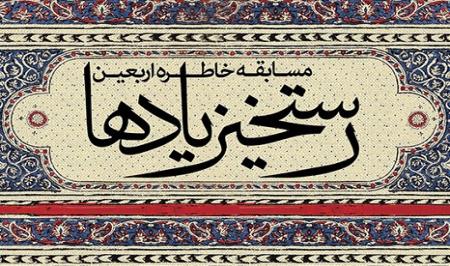 مسابقه خاطره اربعین
رستخیز یادها